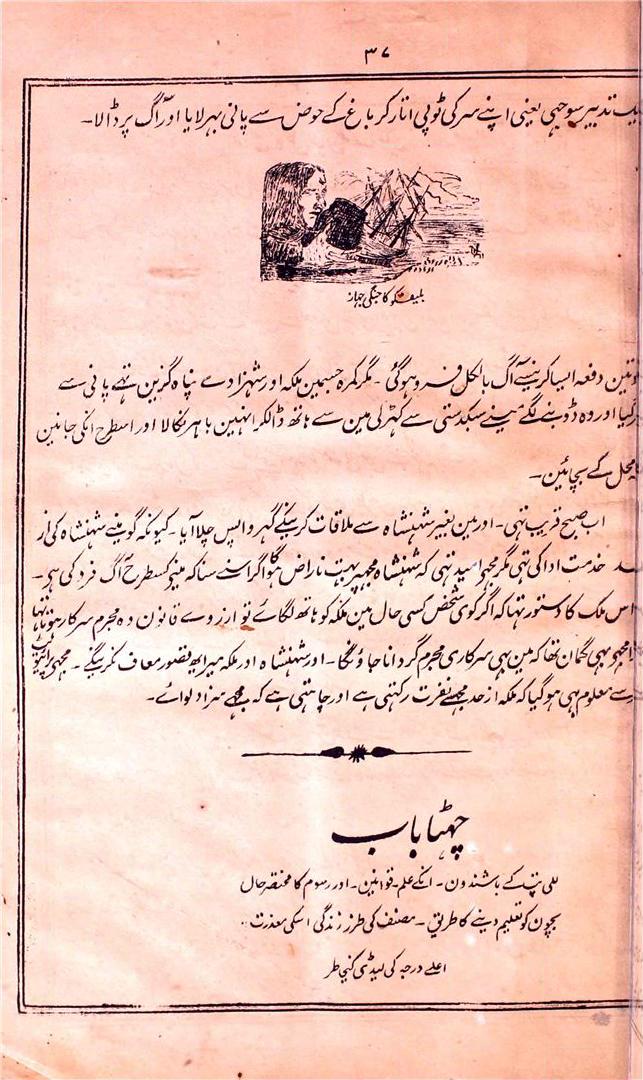 ۳۷
تدبیر سوجہی یعنی اپنے سر کی ٹوپی اتار کر باغ کے حوض سے پانی بہر لایا اور آگ پر ڈالا۔
بلیفسکو کا جنگی جہاز
تین دفعہ ایسا کرنیسے آگ بالکل فرو ہو گئی۔ مگر کمرہ جسمین ملکہ اور شہزادے پناہ گزین تہے پانی سے
گیا اور وہ ڈوبنے لگے مینے سبکدستی سے کہڑکی مین سے ہاتھ ڈالکر انہین باہر نکالا اور اسطرح انکی جانین
محل کے بچائین۔
اب صبح قریب تہی۔ اور مین بغیر شہنشاہ سے ملاقات کرنیکے گہر واپس چلا آیا۔ کیونکہ گو مینے شہنشاہ کی از
خدمت ادا کی تہی مگر مجہے امید تہی کہ شہنشاہ مجہپر بہت ناراض ہوگا اگر اسنے سنا کہ مینے کسطرح آگ فرد کی ہی۔
اس ملک کا دستور تہا کہ اگر کوئی شخص کسی حال مین ملکہ کو ہاتھ لگائے تو ازروے قانون وہ مجرم سرکار ہوتا تہا
مجہے یہی گمان تہا کہ مین بہی سرکاری مجرم گردانا جاؤنگا۔ اور شہنشاہ اور ملکہ میرا یہ قصور معاف کرینگے۔ مجہے
سے معلوم بہی ہو گیا کہ ملکہ از حد مجہسے نفرت رکہتی ہے اور چاہتی ہے کہ مجہے سزا دلوائے۔
چہٹا باب
للی پٹ کے باشندون۔ انکے علم۔ قوانین۔ اور رسوم کا مختصر حال
بچون کو تعلیم دینے کا طریق۔ مصنف کی طرز زندگی اسکی معذرت۔
اعلے درجہ کی لیڈی کیخاطر